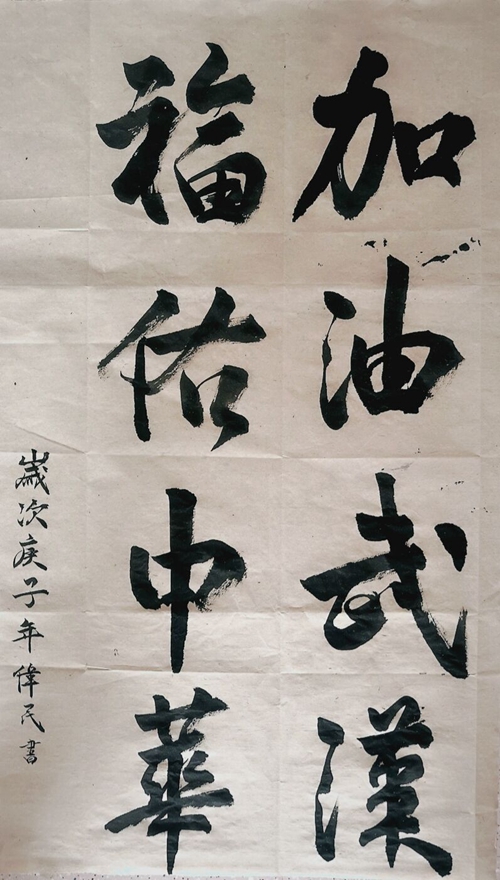 加油武漢
福佑中華
歲次庚子年偉民書